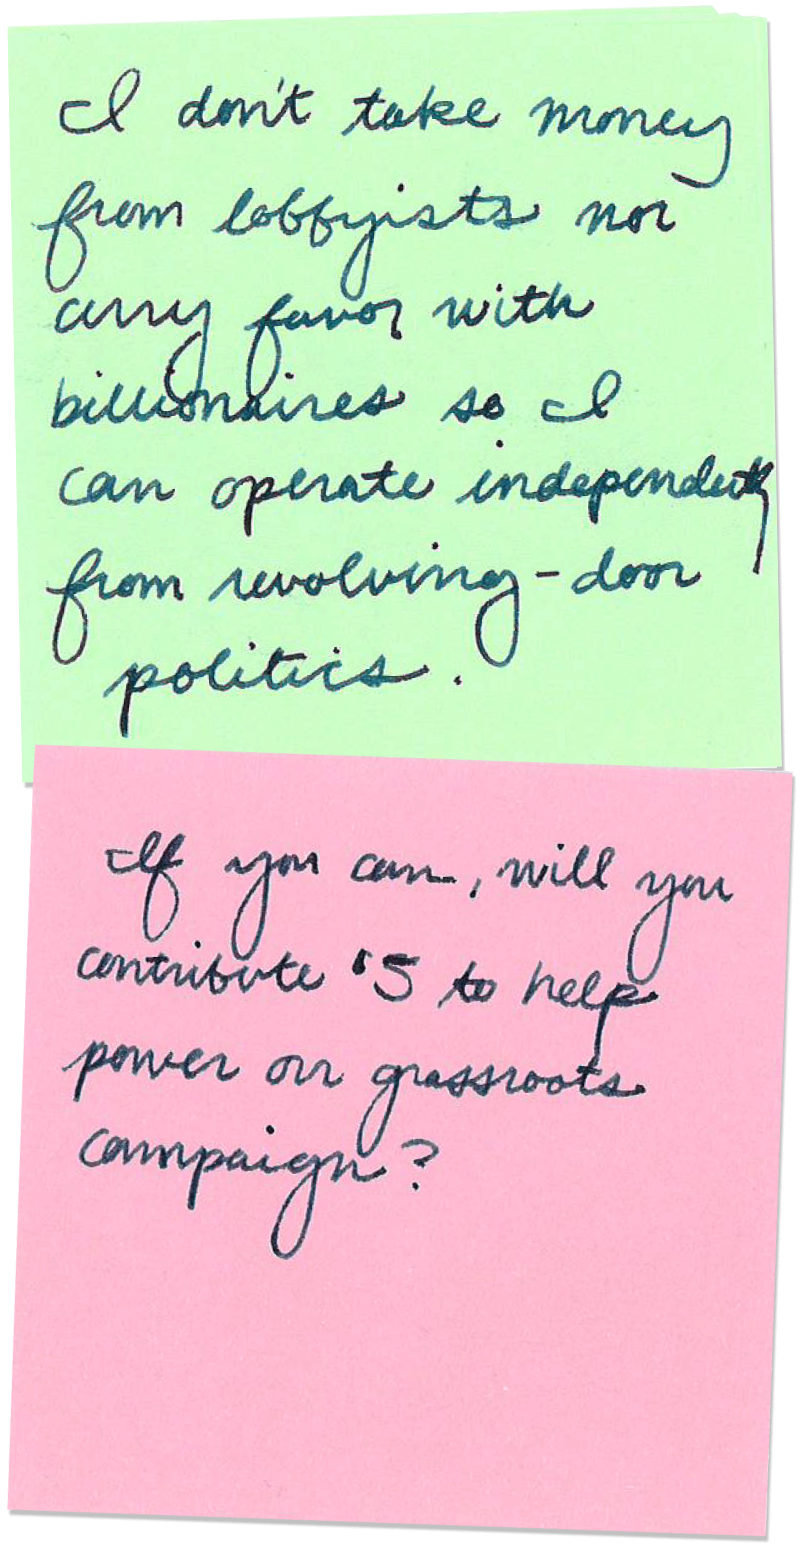 I don't take money
from lobbyists nor
curry favor with
billionaires so I
can operate independently
from revolving-door
politics.
If you can, will you
contribute $5 to help
power our grassroots
campaign?